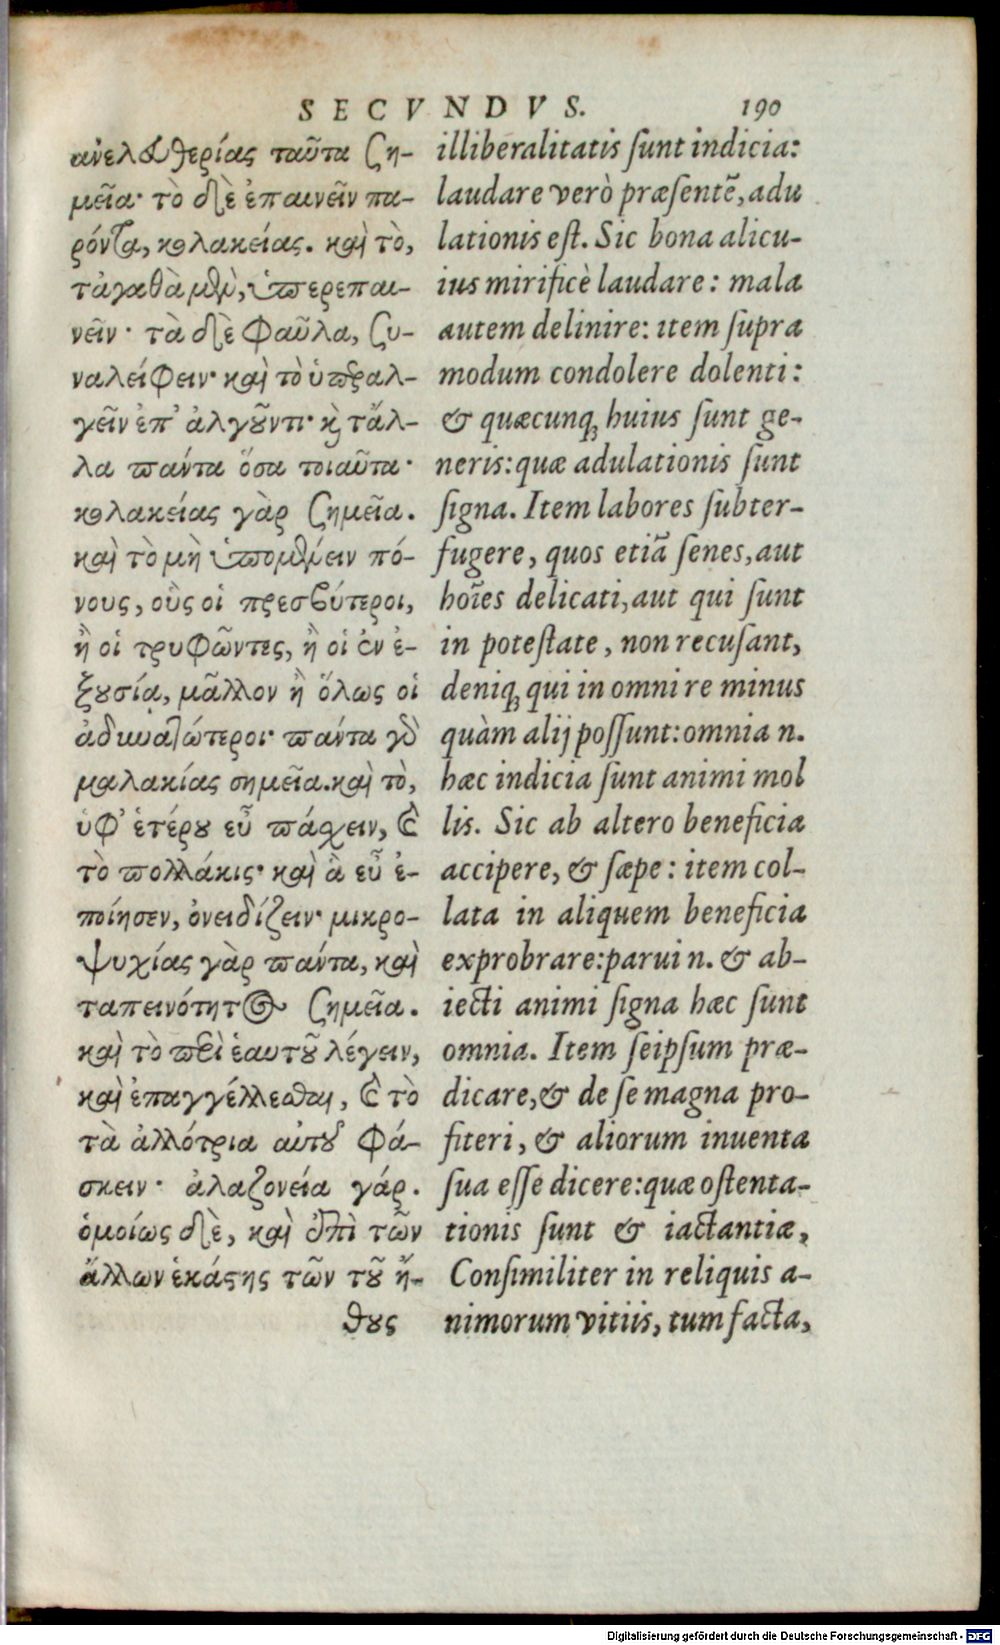 SECVNDVS. 190
ἀνελευθερίας ταῦτα ση-
μεῖα· τὸ δὲ ἐπαινεῖν πα-
ρόντα, κολακείας. καὶ τὸ,
τἀγαθὰ μὲν, ὑπερεπαι-
νεῖν· τὰ δὲ φαῦλα, συ-
ναλείφειν· καὶ τὸ ὑπεραλ-
γεῖν ἐπ' ἀλγοῦντι· καὶ τἄλ-
λα πάντα ὅσα τοιαῦτα·
κολακείας γὰρ σημεῖα.
καὶ τὸ μὴ ὑπομένειν πό-
νους, οὓς οἱ πρεσβύτεροι,
ἢ οἱ τρυφῶντες, ἢ οἱ ἐν ἐ-
ξουσίᾳ, μᾶλλον ἢ ὅλως οἱ
ἀδυνατώτεροι· πάντα γὰρ
μαλακίας σημεῖα. καὶ τὸ,
ὑφ' ἑτέρου εὖ πάσχειν, καὶ
τὸ πολλάκις· καὶ ἃ εὖ ἐ-
ποίησεν, ὀνειδίζειν· μικρο-
ψυχίας γὰρ πάντα, καὶ
ταπεινότητος σημεῖα.
καὶ τὸ περὶ ἑαυτοῦ λέγειν,
καὶ ἐπαγγέλλεσθαι, καὶ τὸ
τὰ ἀλλότρια αὑτοῦ φά-
σκειν· ἀλαζονεία γάρ.
ὁμοίως δὲ, καὶ ἐπὶ τῶν
ἄλλων ἑκάστης τῶν τοῦ ἤ-
θους
illiberalitatis ſunt indicia:
laudare verò præſentẽ, adu
lationis eſt. Sic bona alicu-
ius mirificè laudare: mala
autem delinire: item ſupra
modum condolere dolenti:
& quæcunq; huius ſunt ge-
neris: quæ adulationis ſunt
ſigna. Item labores ſubter-
fugere, quos etiã ſenes, aut
hoĩes delicati, aut qui ſunt
in poteſtate, non recuſant,
deniq; qui in omni re minus
quàm alij poſſunt: omnia n.
hæc indicia ſunt animi mol
lis. Sic ab altero beneficia
accipere, & ſæpe: item col-
lata in aliquem beneficia
exprobrare: parui n. & ab-
iecti animi ſigna hæc ſunt
omnia. Item ſeipſum præ-
dicare, & de ſe magna pro-
fiteri, & aliorum inuenta
ſua eſſe dicere: quæ oſtenta-
tionis ſunt & iactantiæ,
Conſimiliter in reliquis a-
nimorum vitiis, tum facta,
Digitalisierung gefördert durch die Deutsche Forschungsgemeinschaft - DFG